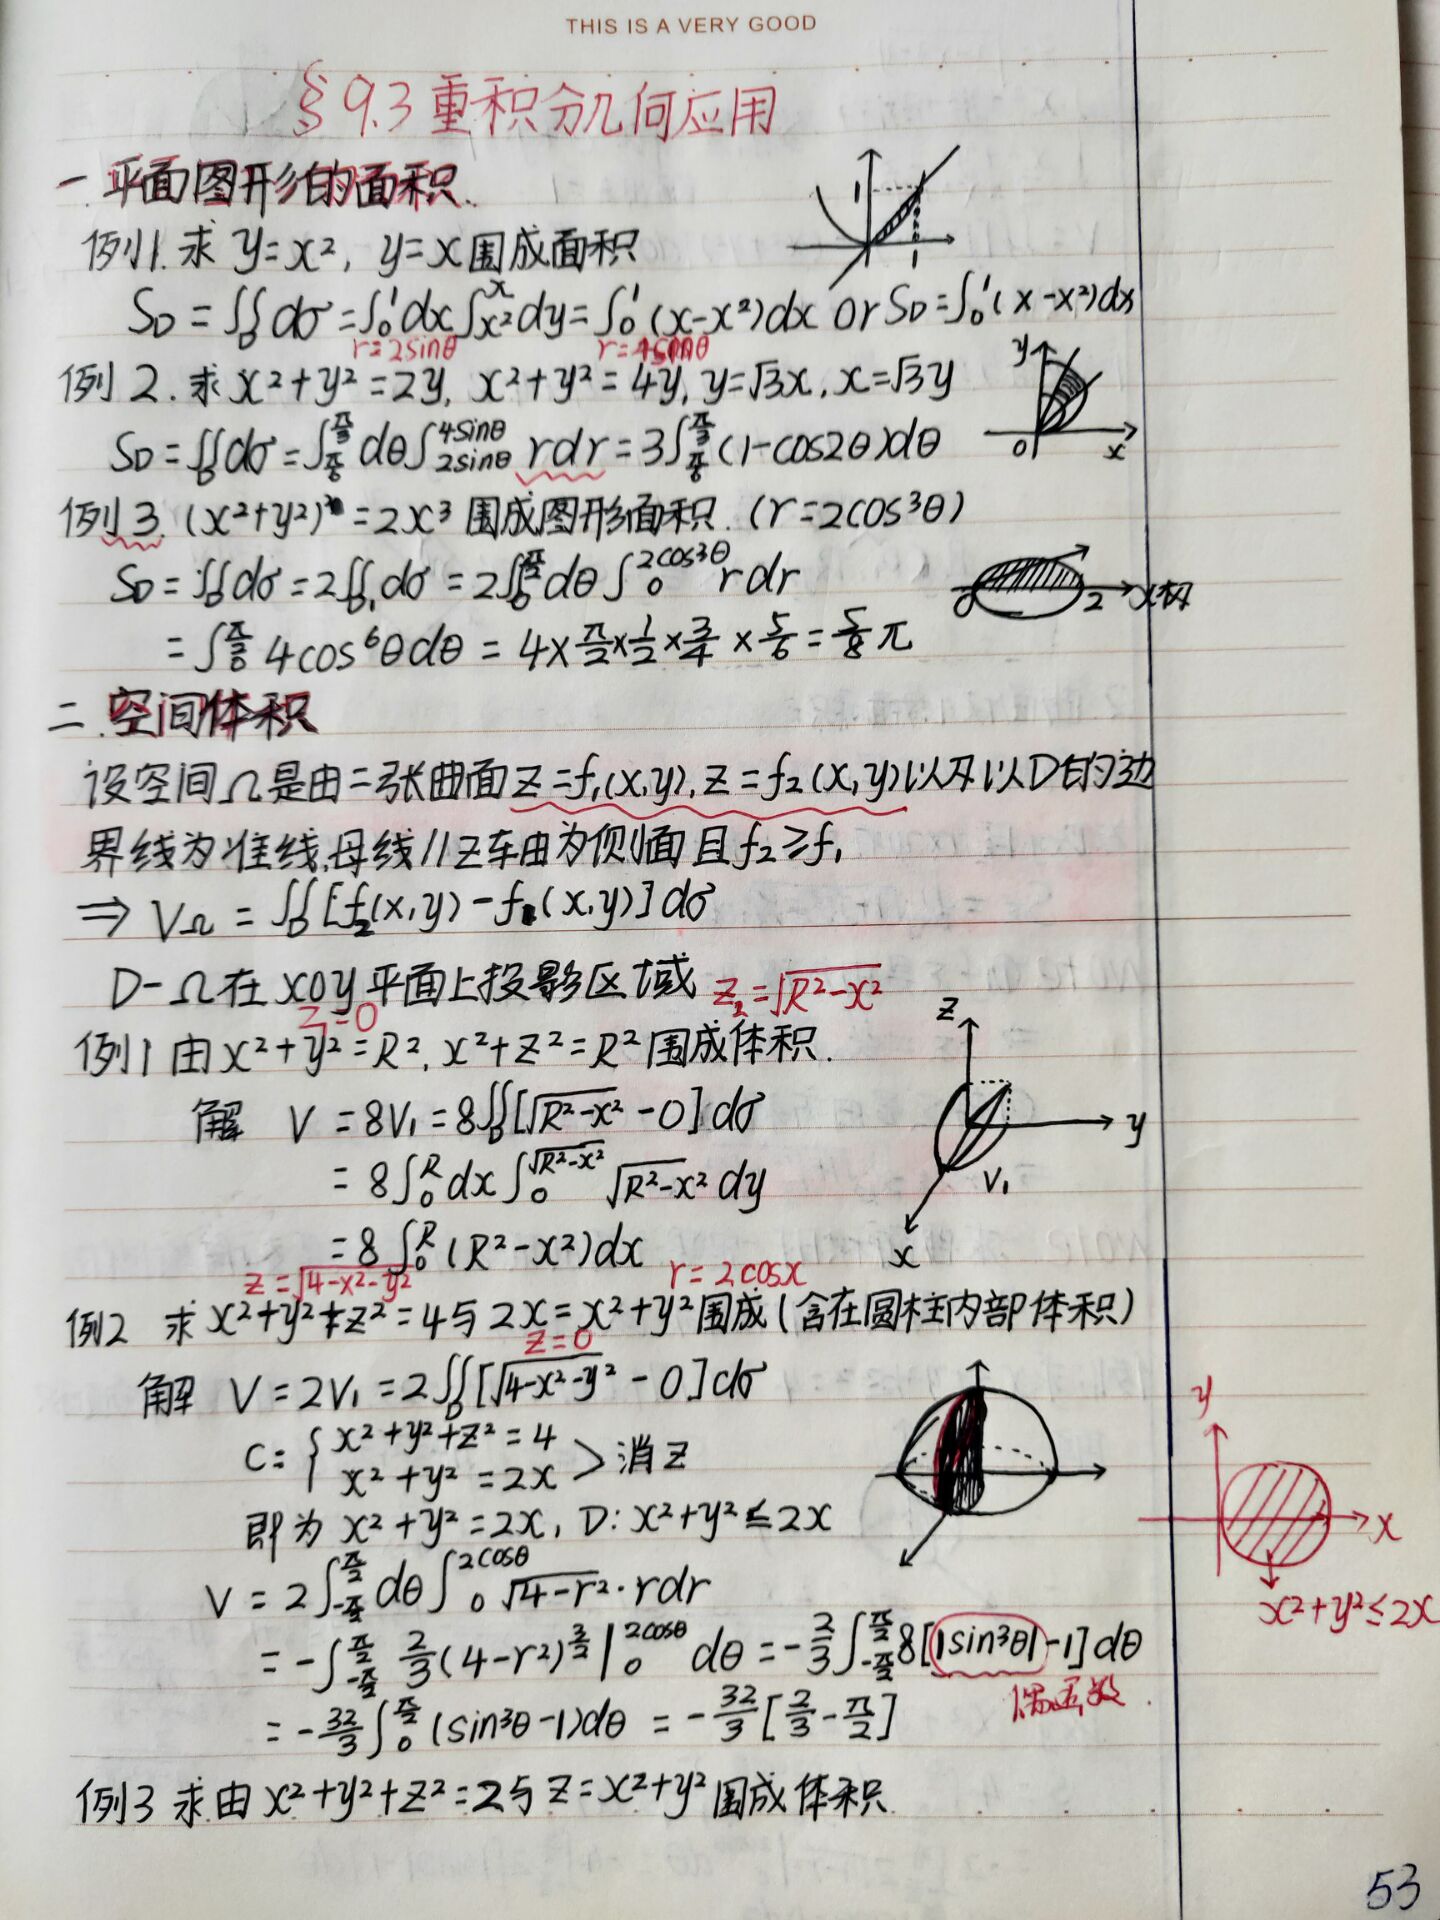 THIS IS A VERY GOOD
§9.3 重积分几何应用
一.平面图形的面积.
例1.求 y=x², y=x围成面积
S_D=∬_D dσ=∫₀¹dx∫_{x²}^{x}dy=∫₀¹(x-x²)dx or S_D=∫₀¹(x-x²)dx
1
1
r=2sinθ r=4sinθ
例2.求 x²+y²=2y, x²+y²=4y, y=√3x, x=√3y
S_D=∬_D dσ=∫_{π/6}^{π/3}dθ∫_{2sinθ}^{4sinθ} rdr=3∫_{π/6}^{π/3}(1-cos2θ)dθ
y
0 x
例3.(x²+y²)²=2x³ 围成图形面积.(r=2cos³θ)
S_D=∬_D dσ=2∬_{D₁}dσ=2∫₀^{π/2}dθ∫₀^{2cos³θ} rdr
0 2 x
=∫₀^{π/2} 4cos⁶θdθ=4×π/2×1/2×3/4×5/6=5/8 π
二.空间体积
设空间Ω是由二张曲面z=f₁(x,y), z=f₂(x,y)以及以D的边
界线为准线,母线//z轴为侧面且f₂≥f₁
⇒ V_Ω=∬_D[f₂(x,y)-f₁(x,y)]dσ
D-Ω在xoy平面上投影区域 z₂=√(R²-x²)
z=0
例1 由x²+y²=R², x²+z²=R²围成体积.
解 V=8V₁=8∬_D[√(R²-x²)-0]dσ
=8∫₀^R dx∫₀^{√(R²-x²)} √(R²-x²)dy
=8∫₀^R(R²-x²)dx
z
y
V₁
x
z=√(4-x²-y²) r=2cosx
例2 求x²+y²+z²=4与2x=x²+y²围成(含在圆柱内部体积)
z=0
解 V=2V₁=2∬_D[√(4-x²-y²)-0]dσ
C:{x²+y²+z²=4
x²+y²=2x >消z
即为x²+y²=2x, D:x²+y²≤2x
V=2∫_{-π/2}^{π/2}dθ∫₀^{2cosθ} √(4-r²)·rdr
=-∫_{-π/2}^{π/2} 2/3(4-r²)^{3/2}|₀^{2cosθ} dθ=-2/3∫_{-π/2}^{π/2}8[|sin³θ|-1]dθ
偶函数.
=-32/3∫₀^{π/2}(sin³θ-1)dθ=-32/3[2/3-π/2]
y
x
x²+y²≤2x
例3 求由x²+y²+z²=2与z=x²+y²围成体积.
53